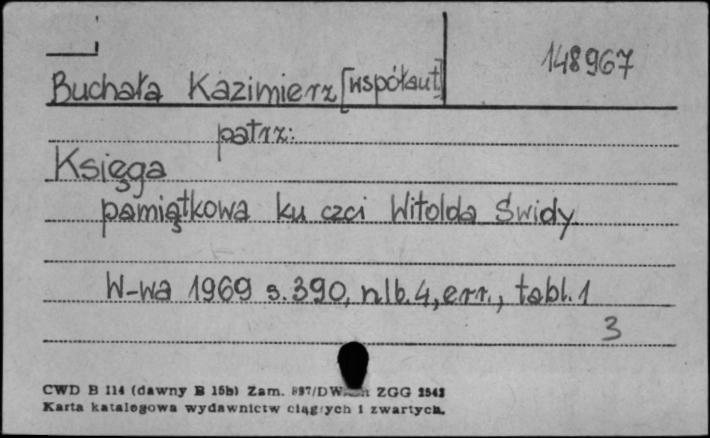 148967
Buchała Kazimierz [współaut]
patrz:
Księga
pamiątkowa ku czci Witolda Świdy
W-wa 1969 s. 390, nlb. 4, err., tabl. 1
3
CWD B 114 (dawny B 15b) Zam. ZGG
Karta katalogowa wydawnictw ciągłych i zwartych.